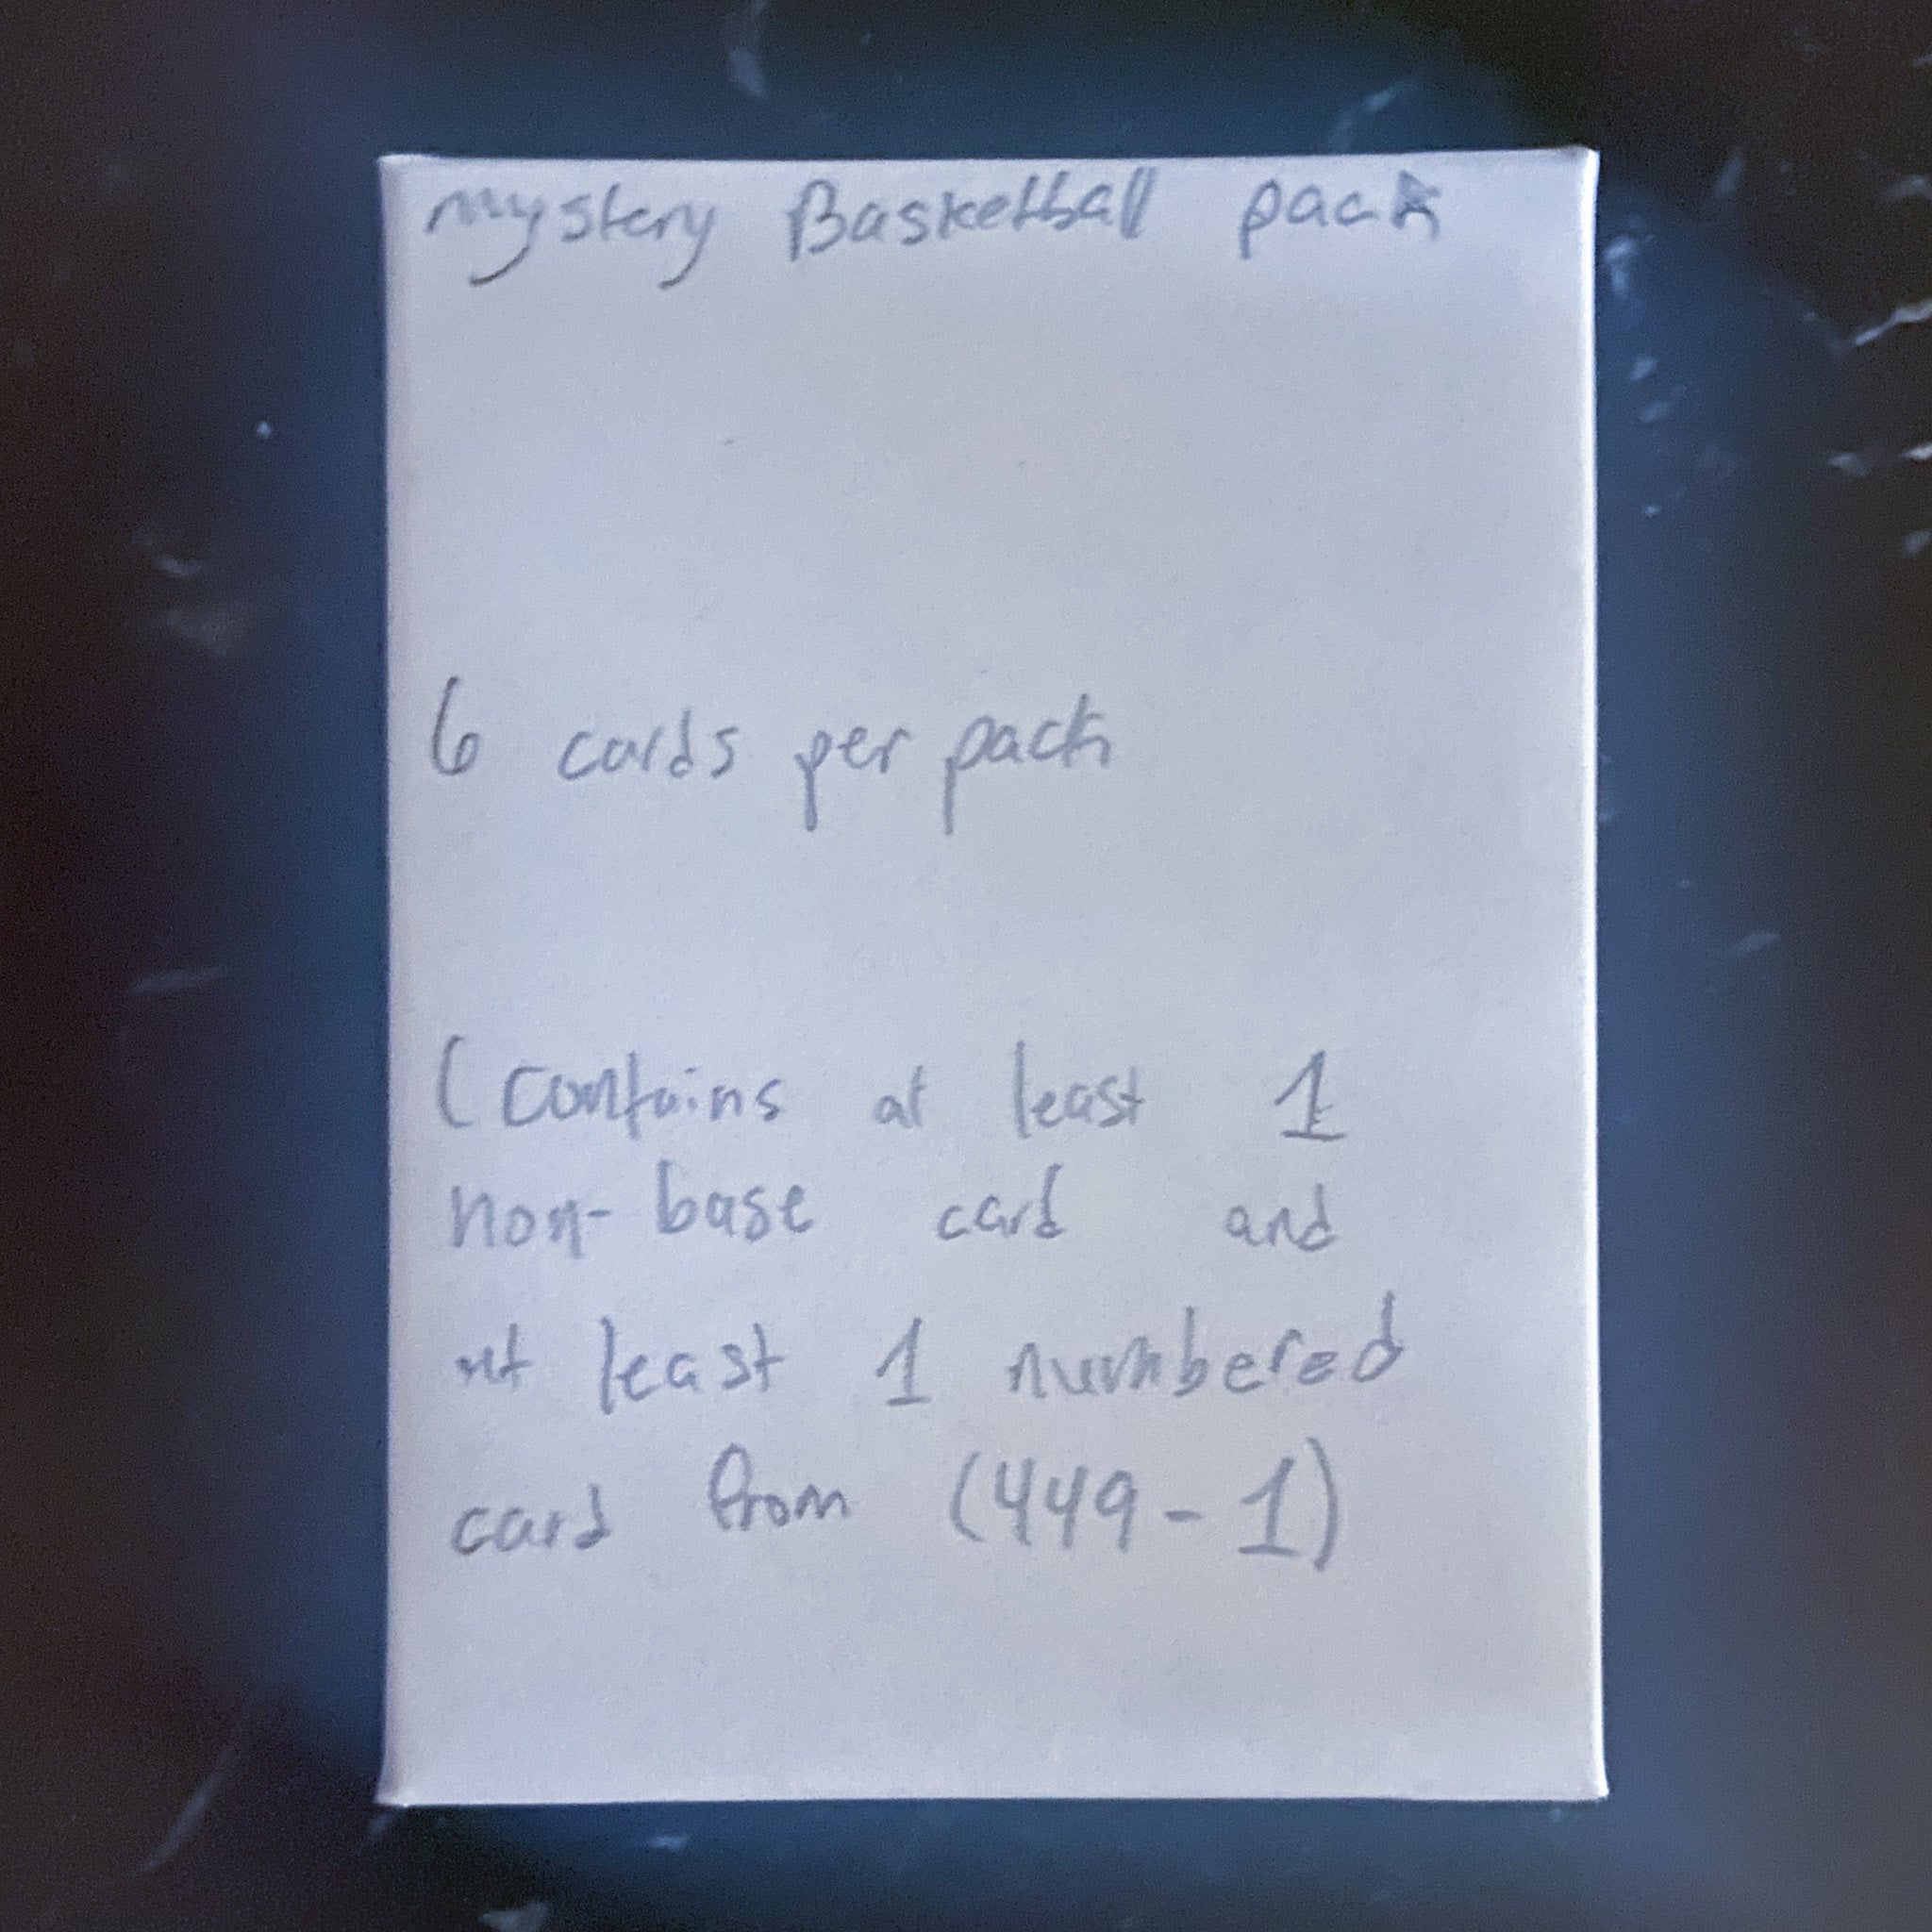 mystery Basketball pack
6 cards per pack
(contains at least 1
non-base card and
at least 1 numbered
card from (449-1)